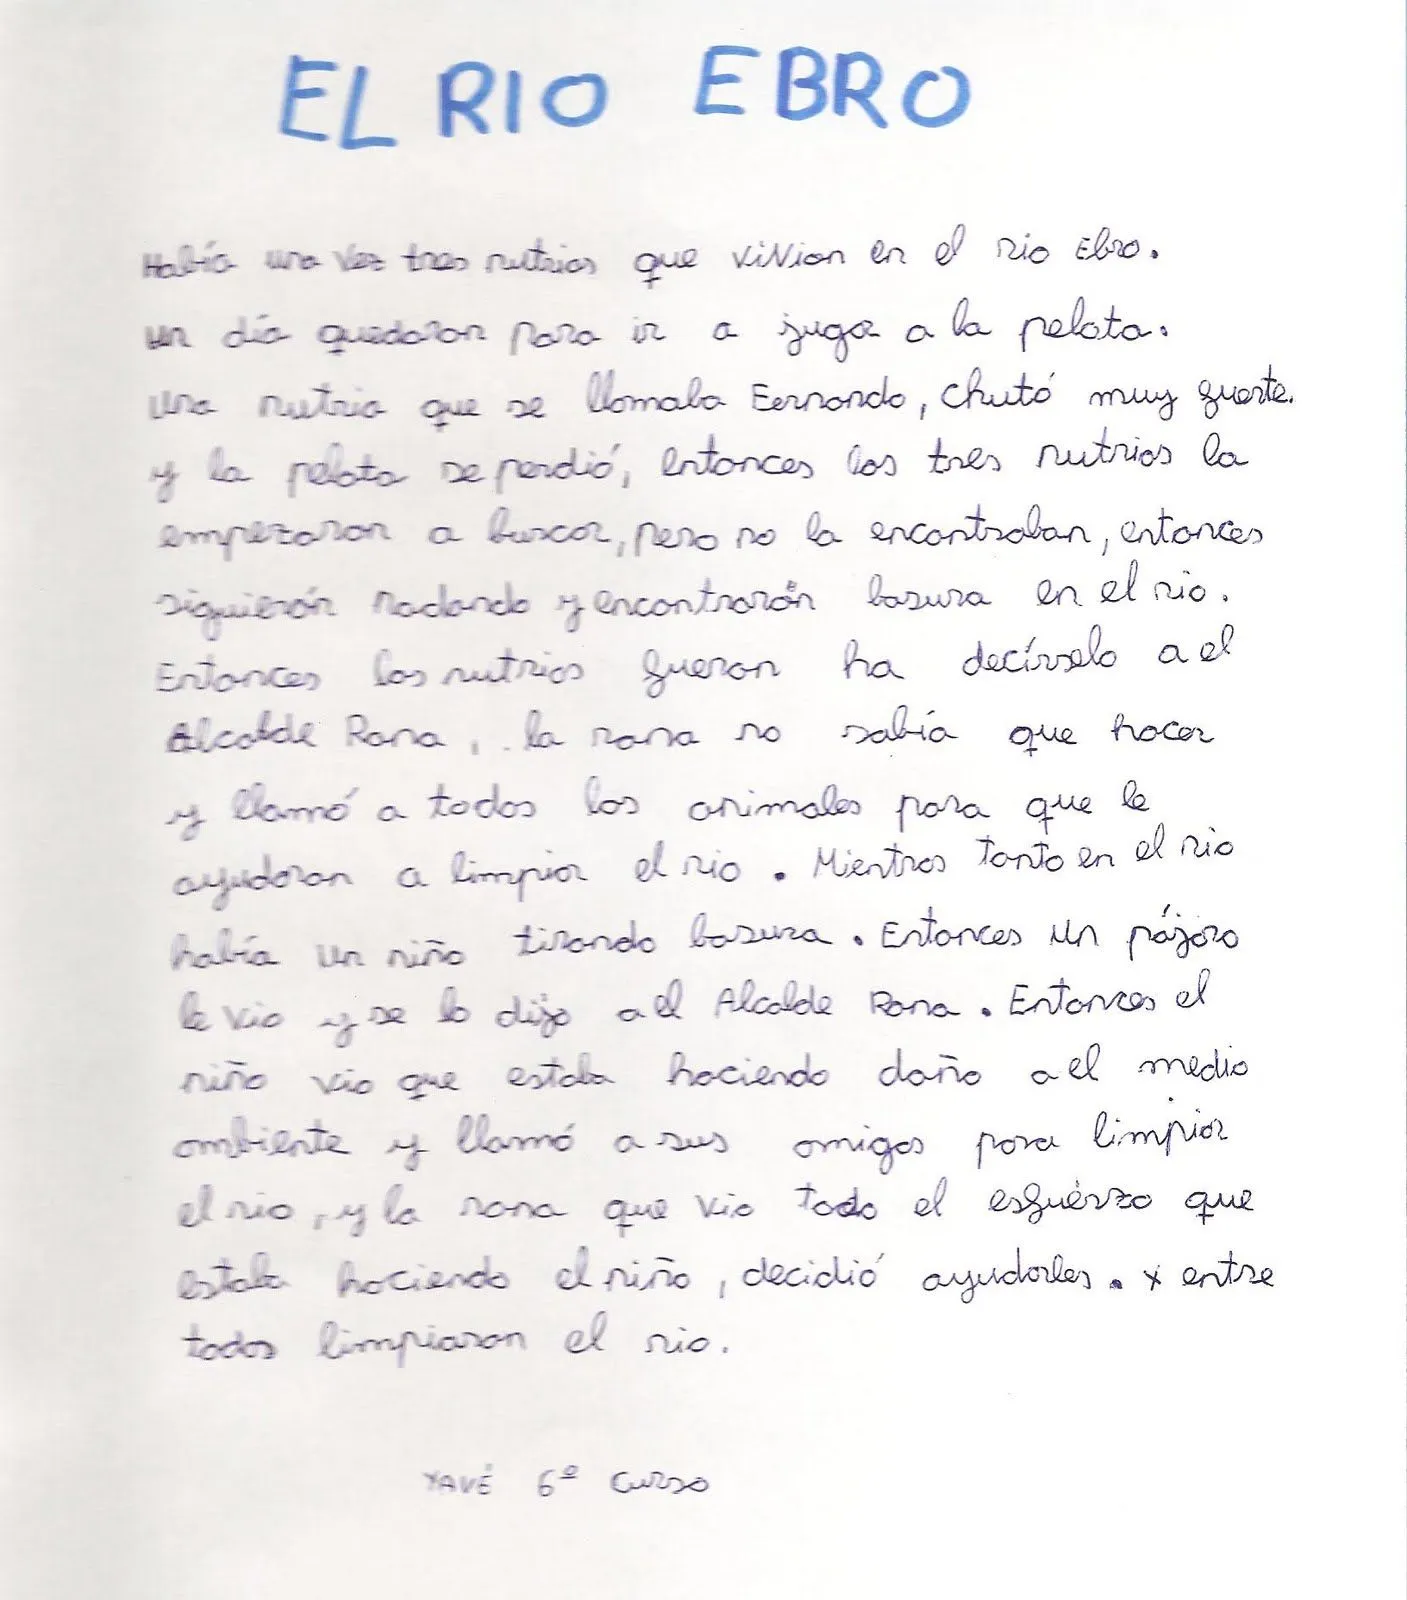 EL RIO EBRO
Había una vez tres nutrias que vivian en el rio Ebro.
un día quedaron para ir a jugar a la pelota.
Una nutria que se llamaba Fernando, chutó muy fuerte.
y la pelota se perdió, entonces las tres nutrias la
empezaron a buscar, pero no la encontraban, entonces
siguierón nadando y encontrarón basura en el rio.
Entonces las nutrias fueron ha decírselo a el
Alcalde Rana, la rana no sabía que hacer
y llamó a todos los animales para que le
ayudaran a limpiar el rio. Mientras tanto en el rio
había un niño tirando basura. Entonces un pájaro
le vio y se lo dijo a el Alcalde Rana. Entonces el
niño vio que estaba haciendo daño a el medio
ambiente y llamó a sus amigos para limpiar
el rio, y la rana que vio todo el esfuérzo que
estaba haciendo el niño, decidió ayudarles. x entre
todos limpiaron el rio.
YAVÉ 6º Curso